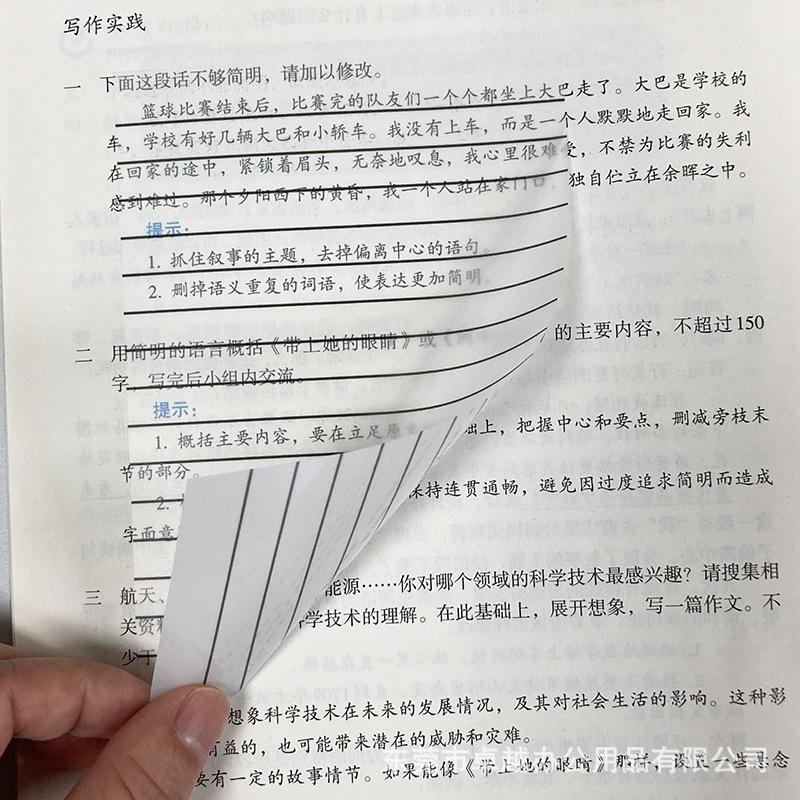 写作实践
一 下面这段话不够简明，请加以修改。
篮球比赛结束后，比赛完的队友们一个个都坐上大巴走了。大巴是学校的
车，学校有好几辆大巴和小轿车。我没有上车，而是一个人默默地走回家。我
在回家的途中，紧锁着眉头，无奈地叹息，我心里很难受，不禁为比赛的失利
感到难过。那个夕阳西下的黄昏，我一个人站在家门口，独自伫立在余晖之中。
提示：
1. 抓住叙事的主题，去掉偏离中心的语句。
2. 删掉语义重复的词语，使表达更加简明。
二 用简明的语言概括《带上她的眼睛》或 的主要内容，不超过150
字，写完后小组内交流。
提示：
1. 概括主要内容，要在立足原 础上，把握中心和要点，删减旁枝末
节的部分。
2. 保持连贯通畅，避免因过度追求简明而造成
字面意
三 航天、 能源……你对哪个领域的科学技术最感兴趣？请搜集相
关资料 科学技术的理解。在此基础上，展开想象，写一篇作文。不
少于
想象科学技术在未来的发展情况，及其对社会生活的影响。这种影
有益的，也可能带来潜在的威胁和灾难。
要有一定的故事情节。如果能像《带上她的眼睛》那样，设置一些悬念
东莞市卓越办公用品有限公司